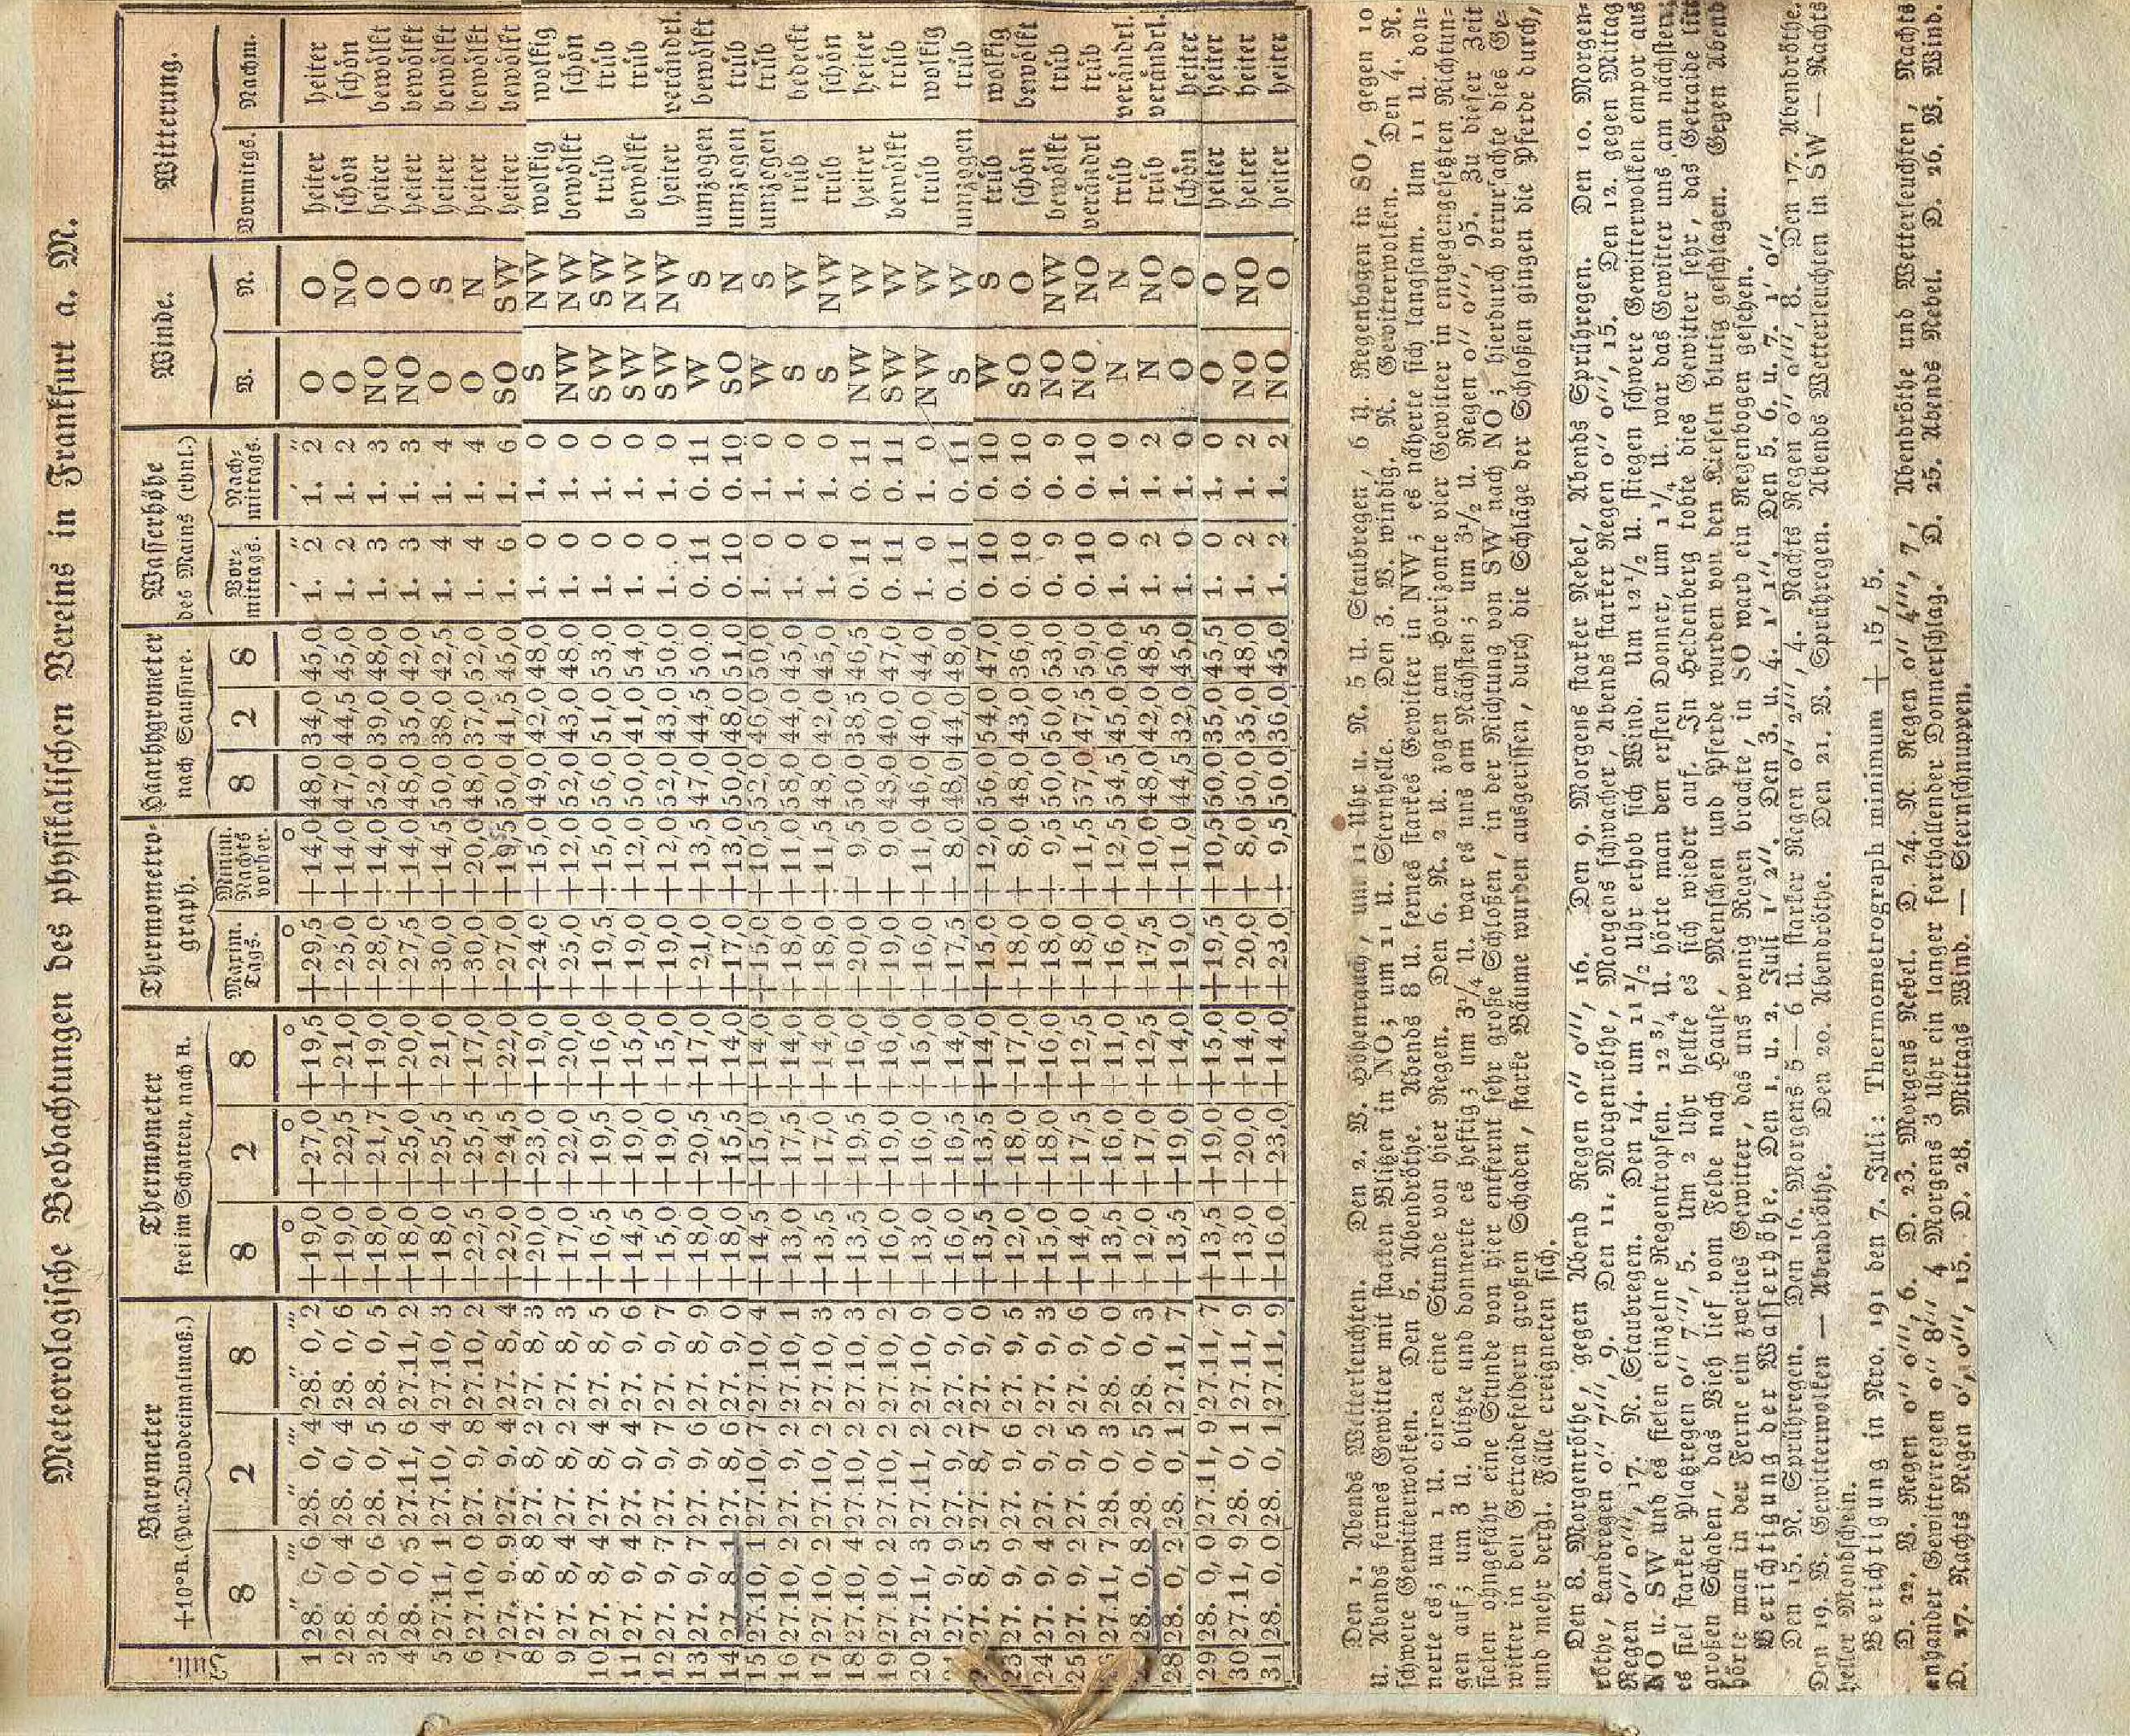 Meteorologische Beobachtungen des physikalischen Vereins in Frankfurt a. M.
Juli. Barometer Thermometer Thermometro- Haarhygrometer Wasserhöhe Winde. Witterung.
+10° R. (Par. Duodecimalmaß.) frei im Schatten, nach R. graph. nach Saussure. des Mains (rhnl.)
8 2 8 8 2 8 Maxim. Tags. Minim. Nachts vorher. 8 2 8 Vor-mittags. Nach-mittags. V. N. Vormitgs. Nachm.
1 28." 0, 6"' 28." 0, 4"' 28." 0, 2"' +19,0° +27,0° +19,5° +29,5° +14,0° 48,0 34,0 45,0 1.' 2" 1.' 2" O O heiter heiter
2 28. 0, 4 28. 0, 4 28. 0, 6 +19,0 +22,5 +21,0 +25,0 +14,0 47,0 44,5 45,0 1. 2 1. 2 O NO schön schön
3 28. 0, 6 28. 0, 5 28. 0, 5 +18,0 +21,7 +19,0 +28,0 +14,0 52,0 39,0 48,0 1. 3 1. 3 NO O heiter bewölkt
4 28. 0, 5 27.11, 6 27.11, 2 +18,0 +25,0 +20,0 +27,5 +14,0 48,0 35,0 42,0 1. 3 1. 3 NO O heiter bewölkt
5 27.11, 1 27.10, 4 27.10, 3 +18,0 +25,5 +21,0 +30,0 +14,5 50,0 38,0 42,5 1. 4 1. 4 O S heiter bewölkt
6 27.10, 0 27. 9, 8 27.10, 2 +22,5 +25,5 +17,0 +30,0 +20,0 48,0 37,0 52,0 1. 4 1. 4 O N heiter bewölkt
7 27. 9, 9 27. 9, 4 27. 8, 4 +22,0 +24,5 +22,0 +27,0 50,0 41,5 45,0 1. 6 1. 6 SO SW heiter bewölkt
8 27. 8, 8 27. 8, 2 27. 8, 3 +20,0 +23,0 +19,0 +24,0 +15,0 49,0 42,0 48,0 1. 0 1. 0 S NW wolkig wolkig
9 27. 8, 4 27. 8, 2 27. 8, 3 +17,0 +22,0 +20,0 +25,0 +12,0 52,0 43,0 48,0 1. 0 1. 0 NW NW bewölkt schön
10 27. 8, 4 27. 8, 4 27. 8, 5 +16,5 +19,5 +16,0 +19,5 +15,0 56,0 51,0 53,0 1. 0 1. 0 SW SW trüb trüb
11 27. 9, 4 27. 9, 4 27. 9, 6 +14,5 +19,0 +15,0 +19,0 +12,0 50,0 41,0 54,0 1. 0 1. 0 SW NW bewölkt trüb
12 27. 9, 7 27. 9, 7 27. 9, 7 +15,0 +19,0 +15,0 +19,0 +12,0 52,0 43,0 50,0 1. 0 1. 0 SW NW heiter verändrl.
13 27. 9, 7 27. 9, 6 27. 8, 9 +18,0 +20,5 +17,0 +21,0 +13,5 47,0 44,5 50,0 0. 11 0. 11 W S umzogen bewölkt
14 27. 8, 1 27. 8, 6 27. 9, 0 +18,0 +15,5 +14,0 +17,0 +13,0 50,0 48,0 51,0 0. 10 0. 10 SO N umzogen trüb
15 27.10, 1 27.10, 7 27.10, 4 +14,5 +15,0 +14,0 +15,0 +10,5 52,0 46,0 50,0 1. 0 1. 0 W S umzogen trüb
16 27.10, 2 27. 9, 2 27.10, 1 +13,0 +17,5 +14,0 +18,0 +11,0 58,0 44,0 45,0 1. 0 1. 0 S W trüb bedeckt
17 27.10, 2 27.10, 2 27.10, 3 +13,5 +17,0 +14,0 +18,0 +11,5 48,0 42,0 45,0 1. 0 1. 0 S NW trüb schön
18 27.10, 4 27.10, 2 27.10, 3 +13,5 +19,5 +16,0 +20,0 + 9,5 50,0 38,5 46,5 0. 11 0. 11 NW W heiter heiter
19 27.10, 2 27.10, 2 27.10, 2 +16,0 +19,0 +16,0 +19,0 + 9,0 43,0 40,0 47,0 0. 11 0. 11 SW W bewölkt trüb
20 27.11, 3 27.11, 2 27.10, 9 +13,0 +16,0 +15,0 +16,0 +11,0 46,0 40,0 44,0 1. 0 1. 0 NW W trüb wolkig
27. 9, 9 27. 9, 2 27. 9, 0 +16,0 +16,5 +14,0 +17,5 + 8,0 48,0 44,0 48,0 0. 11 0. 11 S W umzogen trüb
27. 8, 5 27. 8, 7 27. 9, 0 +13,5 +13,5 +14,0 +15,0 +12,0 56,0 54,0 47,0 0. 10 0. 10 W S trüb wolkig
23 27. 9, 9 27. 9, 6 27. 9, 5 +12,0 +18,0 +17,0 +18,0 + 8,0 48,0 43,0 36,0 0. 10 0. 10 SO O schön bewölkt
24 27. 9, 4 27. 9, 2 27. 9, 3 +15,0 +18,0 +16,0 +18,0 + 9,5 50,0 50,0 53,0 0. 9 0. 9 NO NW bewölkt trüb
25 27. 9, 2 27. 9, 5 27. 9, 6 +14,0 +17,5 +12,5 +18,0 +11,5 57,0 47,5 59,0 0. 10 0. 10 NO NO verändrl trüb
27.11, 7 28. 0, 3 28. 0, 0 +13,5 +16,0 +11,0 +16,0 +12,5 54,5 45,0 50,0 1. 0 1. 0 N N trüb verändrl.
28. 0, 8 28. 0, 5 28. 0, 3 +12,0 +17,0 +12,5 +17,5 +10,0 48,0 42,0 48,5 1. 2 1. 2 N NO trüb verändrl.
28 28. 0, 2 28. 0, 1 27.11, 7 +13,5 +19,0 +14,0 +19,0 +11,0 44,5 32,0 45,0 1. 0 1. 0 O O schön heiter
29 28. 0, 0 27.11, 9 27.11, 7 +13,5 +19,0 +15,0 +19,5 +10,5 50,0 35,0 45,5 1. 0 1. 0 O O heiter heiter
30 27.11, 9 28. 0, 1 27.11, 9 +13,0 +20,0 +14,0 +20,0 + 8,0 50,0 35,0 48,0 1. 2 1. 2 NO NO heiter heiter
31 28. 0, 0 28. 0, 1 27.11, 9 +16,0 +23,0 +14,0 +23,0 + 9,5 50,0 36,0 45,0 1. 2 1. 2 NO O heiter heiter
Den 1. Abends Wetterleuchten. Den 2. V. Höhenrauch, um 11 Uhr u. N. 5 U. Staubregen, 6 U. Regenbogen in SO, gegen 10
U. Abends fernes Gewitter mit starken Blitzen in NO; um 11 U. Sternhelle. Den 3. V. windig. N. Gewitterwolken. Den 4. N.
schwere Gewitterwolken. Den 5. Abendröthe. Abends 8 U. fernes starkes Gewitter in NW; es näherte sich langsam. Um 11 U. don-
nerte es; um 1 U. circa eine Stunde von hier Regen. Den 6. N. 2 U. zogen am Horizonte vier Gewitter in entgegengesetzten Richtun-
gen auf; um 3 U. blitzte und donnerte es heftig; um 3¼ U. war es uns am Nächsten; um 3½ U. Regen 0'' 0''', 95. Zu dieser Zeit
fielen ohngefähr eine Stunde von hier entfernt sehr große Schloßen, in der Richtung von SW nach NO; hierdurch verursachte dies Ge-
witter in den Getraidefeldern großen Schaden, starke Bäume wurden ausgerissen, durch die Schläge der Schloßen gingen die Pferde durch,
und mehr dergl. Fälle ereigneten sich.
Den 8. Morgenröthe, gegen Abend Regen 0'' 0''', 16. Den 9. Morgens starker Nebel, Abends Sprühregen. Den 10. Morgen-
röthe, Landregen 0'' 7''', 9. Den 11. Morgenröthe, Morgens schwacher, Abends starker Regen 0'' 0''', 15. Den 12. gegen Mittag
Regen 0'' 0''', 17. N. Staubregen. Den 14. um 11½ Uhr erhob sich Wind. Um 12½ U. stiegen schwere Gewitterwolken empor aus
NO u. SW und es fielen einzelne Regentropfen. 12¾ U. hörte man den ersten Donner, um 1¼ U. war das Gewitter uns am nächsten;
es fiel starker Platzregen 0'' 7''', 5. Um 2 Uhr hellte es sich wieder auf. In Heldenberg tobte dies Gewitter sehr, das Getraide litt
großen Schaden, das Vieh lief vom Felde nach Hause, Menschen und Pferde wurden von den Kieseln blutig geschlagen. Gegen Abend
hörte man in der Ferne ein zweites Gewitter, das uns wenig Regen brachte, in SO ward ein Regenbogen gesehen.
Berichtigung der Wasserhöhe. Den 1. u. 2. Juli 1' 2''. Den 3. u. 4. 1' 1''. Den 5. 6. u. 7. 1' 0''.
Den 15. N. Sprühregen. Den 16. Morgens 5 — 6 U. starker Regen 0'' 2''', 4. Nachts Regen 0'' 0''', 8. Den 17. Abendröthe.
Den 19. V. Gewitterwolken — Abendröthe. Den 20. Abendröthe. Den 21. V. Sprühregen. Abends Wetterleuchten in SW — Nachts
heller Mondschein.
Berichtigung in Nro. 191 den 7. Juli: Thermometrograph minimum + 15, 5.
D. 22. V. Regen 0'' 0''', 6. D. 23. Morgens Nebel. D. 24. N. Regen 0'' 4''', 7, Abendröthe und Wetterleuchten, Nachts
anhander Gewitterregen 0'' 8''' 4 Morgens 3 Uhr ein langer forthallender Donnerschlag. D. 25. Abends Nebel. D. 26. V. Wind.
D. 27. Nachts Regen 0'' 0''', 15. D. 28. Mittags Wind. — Sternschnuppen.